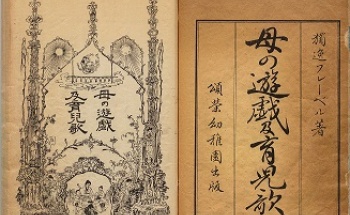 母の遊戯
及育兒歌
獨逸フレーベル著
母の遊戯及育児歌
頌栄幼稚園出版